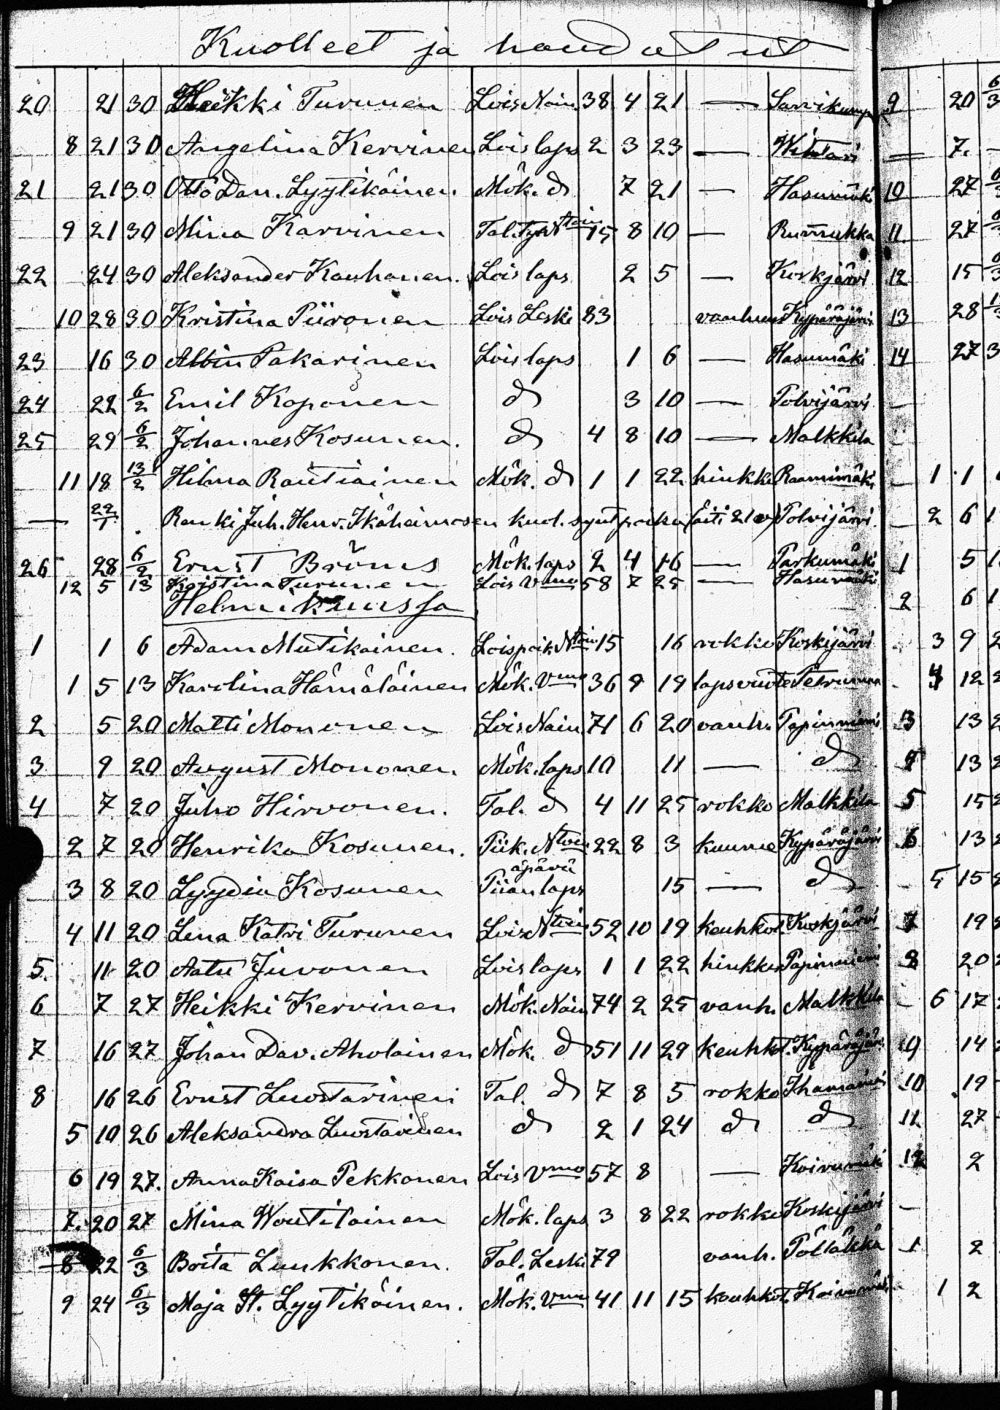 Kuolleet ja haudatut
20 21 30 Heikki Turunen Lois Nain 38 4 21 — Sarvikump 9 20 6/3
8 21 30 Angelina Kervinen Lois laps 2 3 23 — Wihtari — 7
21 21 30 Otto Dan. Lyytikäinen. Mök. d 7 21 — Hasumäki 10 27
9 21 30 Mina Karvinen Tal. tyt Ntoin 15 8 10 — Rummukka 11 27
22 24 30 Aleksander Kauhanen. Lois laps 2 5 — Koskjärvi 12 15
10 28 30 Kristina Piironen Lois Leski 83 vanhuus Kypäräjärvi 13 28
23 16 30 Albin Pakarinen Lois laps 1 6 — Hasumäki 14 27 3
24 22 6/2 Emil Koponen d 3 10 — Polvijärvi —
25 29 6/2 Johannes Kosunen. d 4 8 10 — Malkkila —
11 18 13/2 Hilma Rautiainen Mök. d 1 1 22 hinkku Raanimäki — 1 1
— 22/1 Renki Juh. Henr. Ikäheimosen kuol. synt. poika (äiti 21 v) Polvijärvi — 2 6 1
26 28 6/2 Ernst Bröms Mök. laps 2 4 16 — Parkumäki 1 5 1
12 5 13 Kristina Turunen Lois Vmo 58 7 25 — Hasumäki
Helmikuussa 2 6 1
1 1 6 Adam Mutikainen. Lois poik Ntoin 15 16 rokko Koskijärvi 3 9 2
1 5 13 Karolina Hämäläinen Mök. Vmo 36 9 19 lapsvuote Petrumaa 4 12 2
2 5 20 Matti Mononen Lois Nain 71 6 20 vanh. Papinniemi 3 13 2
3 9 20 August Mononen Mök. laps 10 11 — d 4 13 2
4 7 20 Juho Hirvonen. Tal. d 4 11 25 rokko Malkkila 5 15 2
2 7 20 Henrika Kosunen. Piik. Ntoin 22 8 3 kuume Kypäräjärvi 6 13 2
3 8 20 Lyydia Kosunen äpärä Piian laps 15 — d 5 15 2
4 11 20 Lena Katri Turunen Lois Ntoin 52 10 19 keuhkot. Koskjärvi 7 19 2
5. 11 20 Aatu Juvonen Lois laps 1 1 22 hinkku Papinniemi 8 20 2
6 7 27 Heikki Kervinen Mök. Nain 74 2 25 vanh. Malkkila — 6 17 2
7 16 27 Johan Dav. Aholainen Mök. d 51 11 29 keuhkot. Kypäräjärvi 9 14 2
8 16 26 Ernst Luostarinen Tal. d 7 8 5 rokko Ihamaniemi 10 19
5 10 26 Aleksandra Luostarinen d 2 1 24 d d 11 27
6 19 27. Anna Kaisa Pekkonen Lois Vmo 57 8 — Koivumäki 12 2
7. 20 27 Mina Woutilainen Mök. laps 3 8 22 rokko Koskijärvi —
8 22 6/3 Boita Luukkonen. Tal. Leski 79 vanh. Pölläkkä 1 2
9 24 6/3 Maja St. Lyytikäinen. Mök. Vmo 41 11 15 keuhkot. Koivumäki 1 2